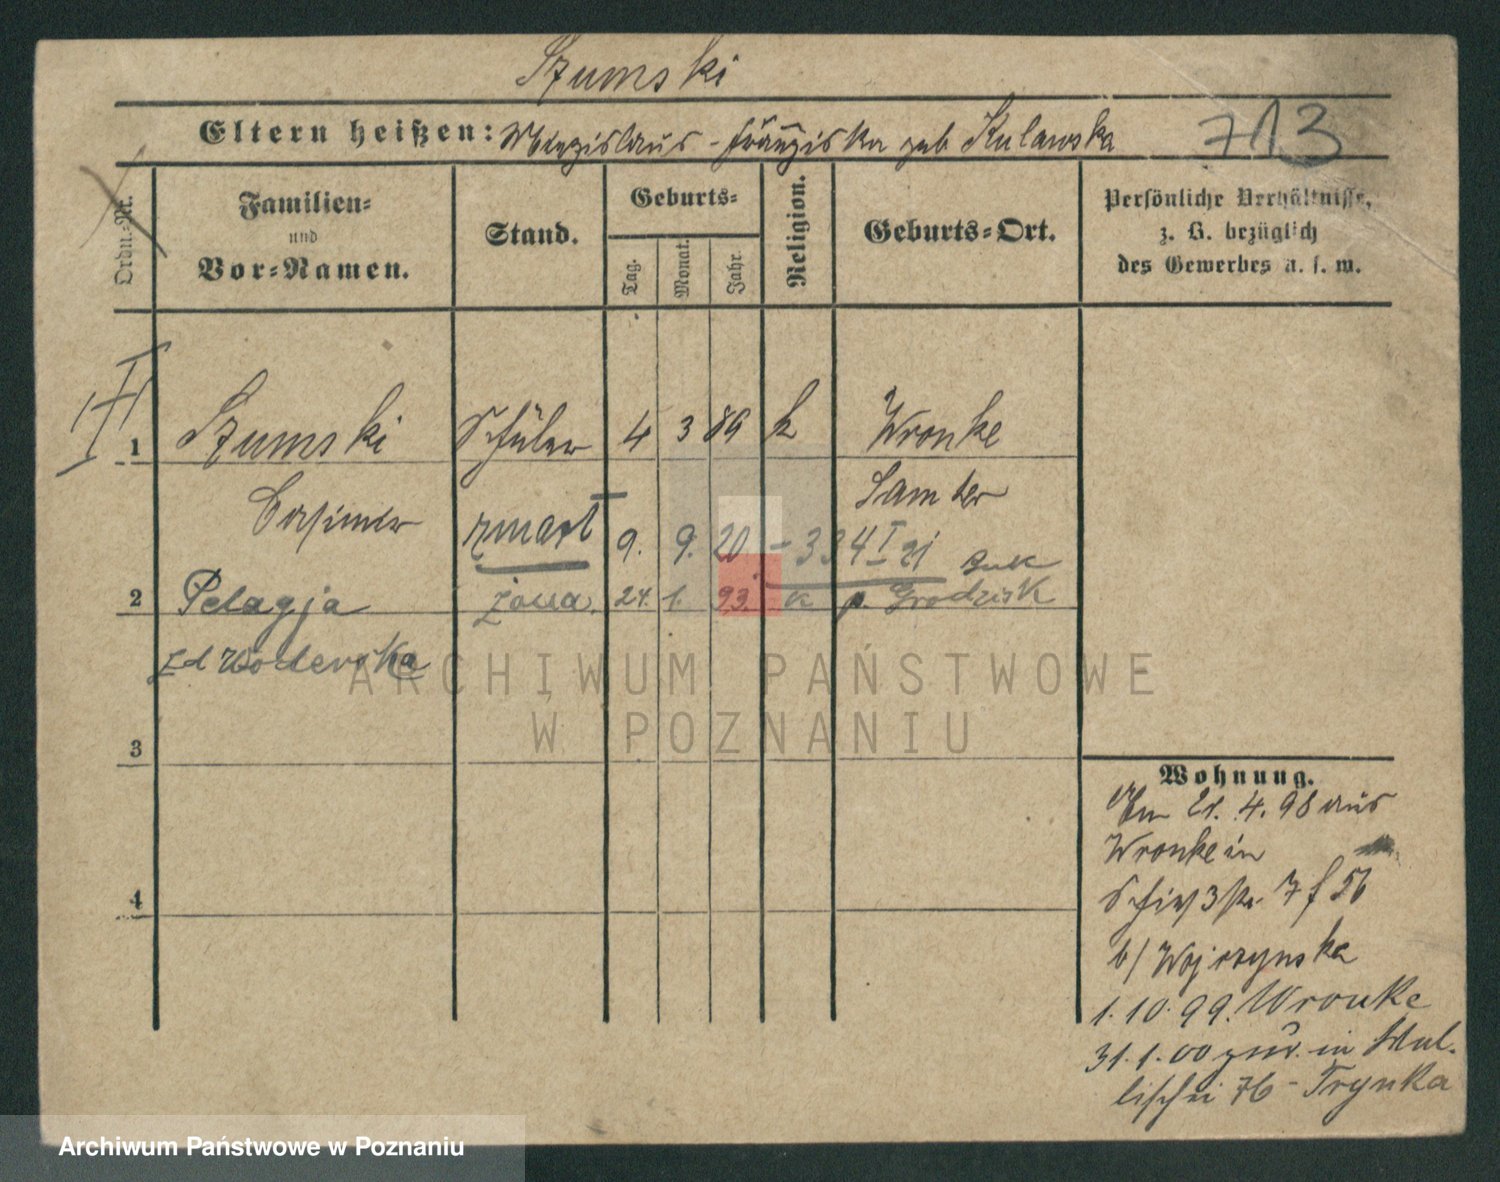 Szumski
Eltern heißen: Miezislaus - Franziska geb Kulawska
713
Ordn.-Nr.
Familien-
und
Vor-Namen.
Stand.
Geburts-
Tag.
Monat.
Jahr.
Religion.
Geburts-Ort.
Persönliche Verhältnisse,
z. B. bezüglich
des Gewerbes u. s. w.
1 Szumski Schüler 4 3 89 k Wronke
Casimir Samter
zmarł 9. 9. 20 - 334 I 21
Buk
2 Pelagja żona. 24. 1. 93. k p. Grodzisk
zd Woderska
3
4
Wohnung.
Am 21. 4. 98 aus
Wronke in
Schießstr 7 f 56
b/ Wojczynska
1. 10. 99. Wronke
31. 1. 00 zur. in Hal-
lischei 76 - Trynka
ARCHIWUM PAŃSTWOWE
W POZNANIU
Archiwum Państwowe w Poznaniu